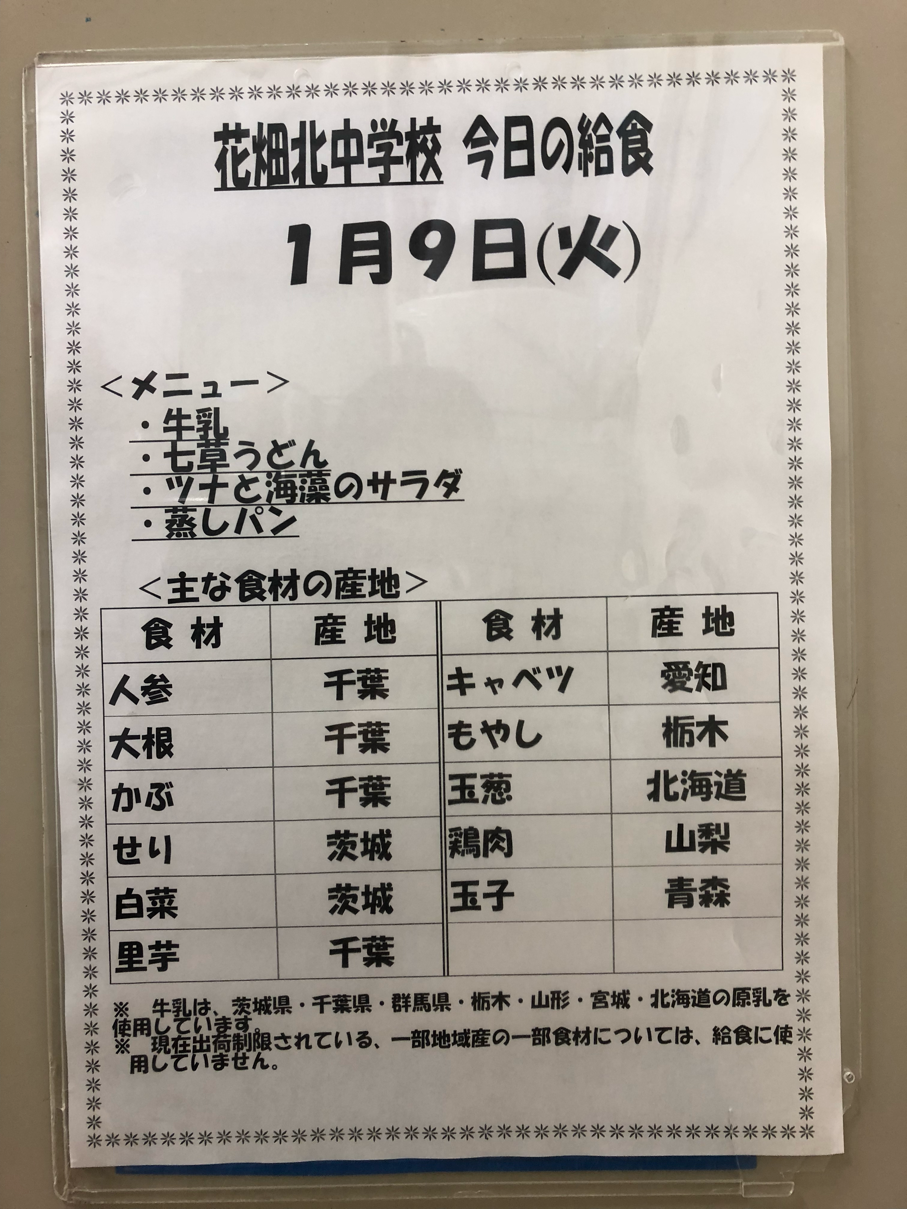 花畑北中学校 今日の給食
1月9日(火)
<メニュー>
・牛乳
・七草うどん
・ツナと海藻のサラダ
・蒸しパン
<主な食材の産地>
食材 産地 食材 産地
人参 千葉 キャベツ 愛知
大根 千葉 もやし 栃木
かぶ 千葉 玉葱 北海道
せり 茨城 鶏肉 山梨
白菜 茨城 玉子 青森
里芋 千葉
※ 牛乳は、茨城県・千葉県・群馬県・栃木・山形・宮城・北海道の原乳を
使用しています。
※ 現在出荷制限されている、一部地域産の一部食材については、給食に使
用していません。